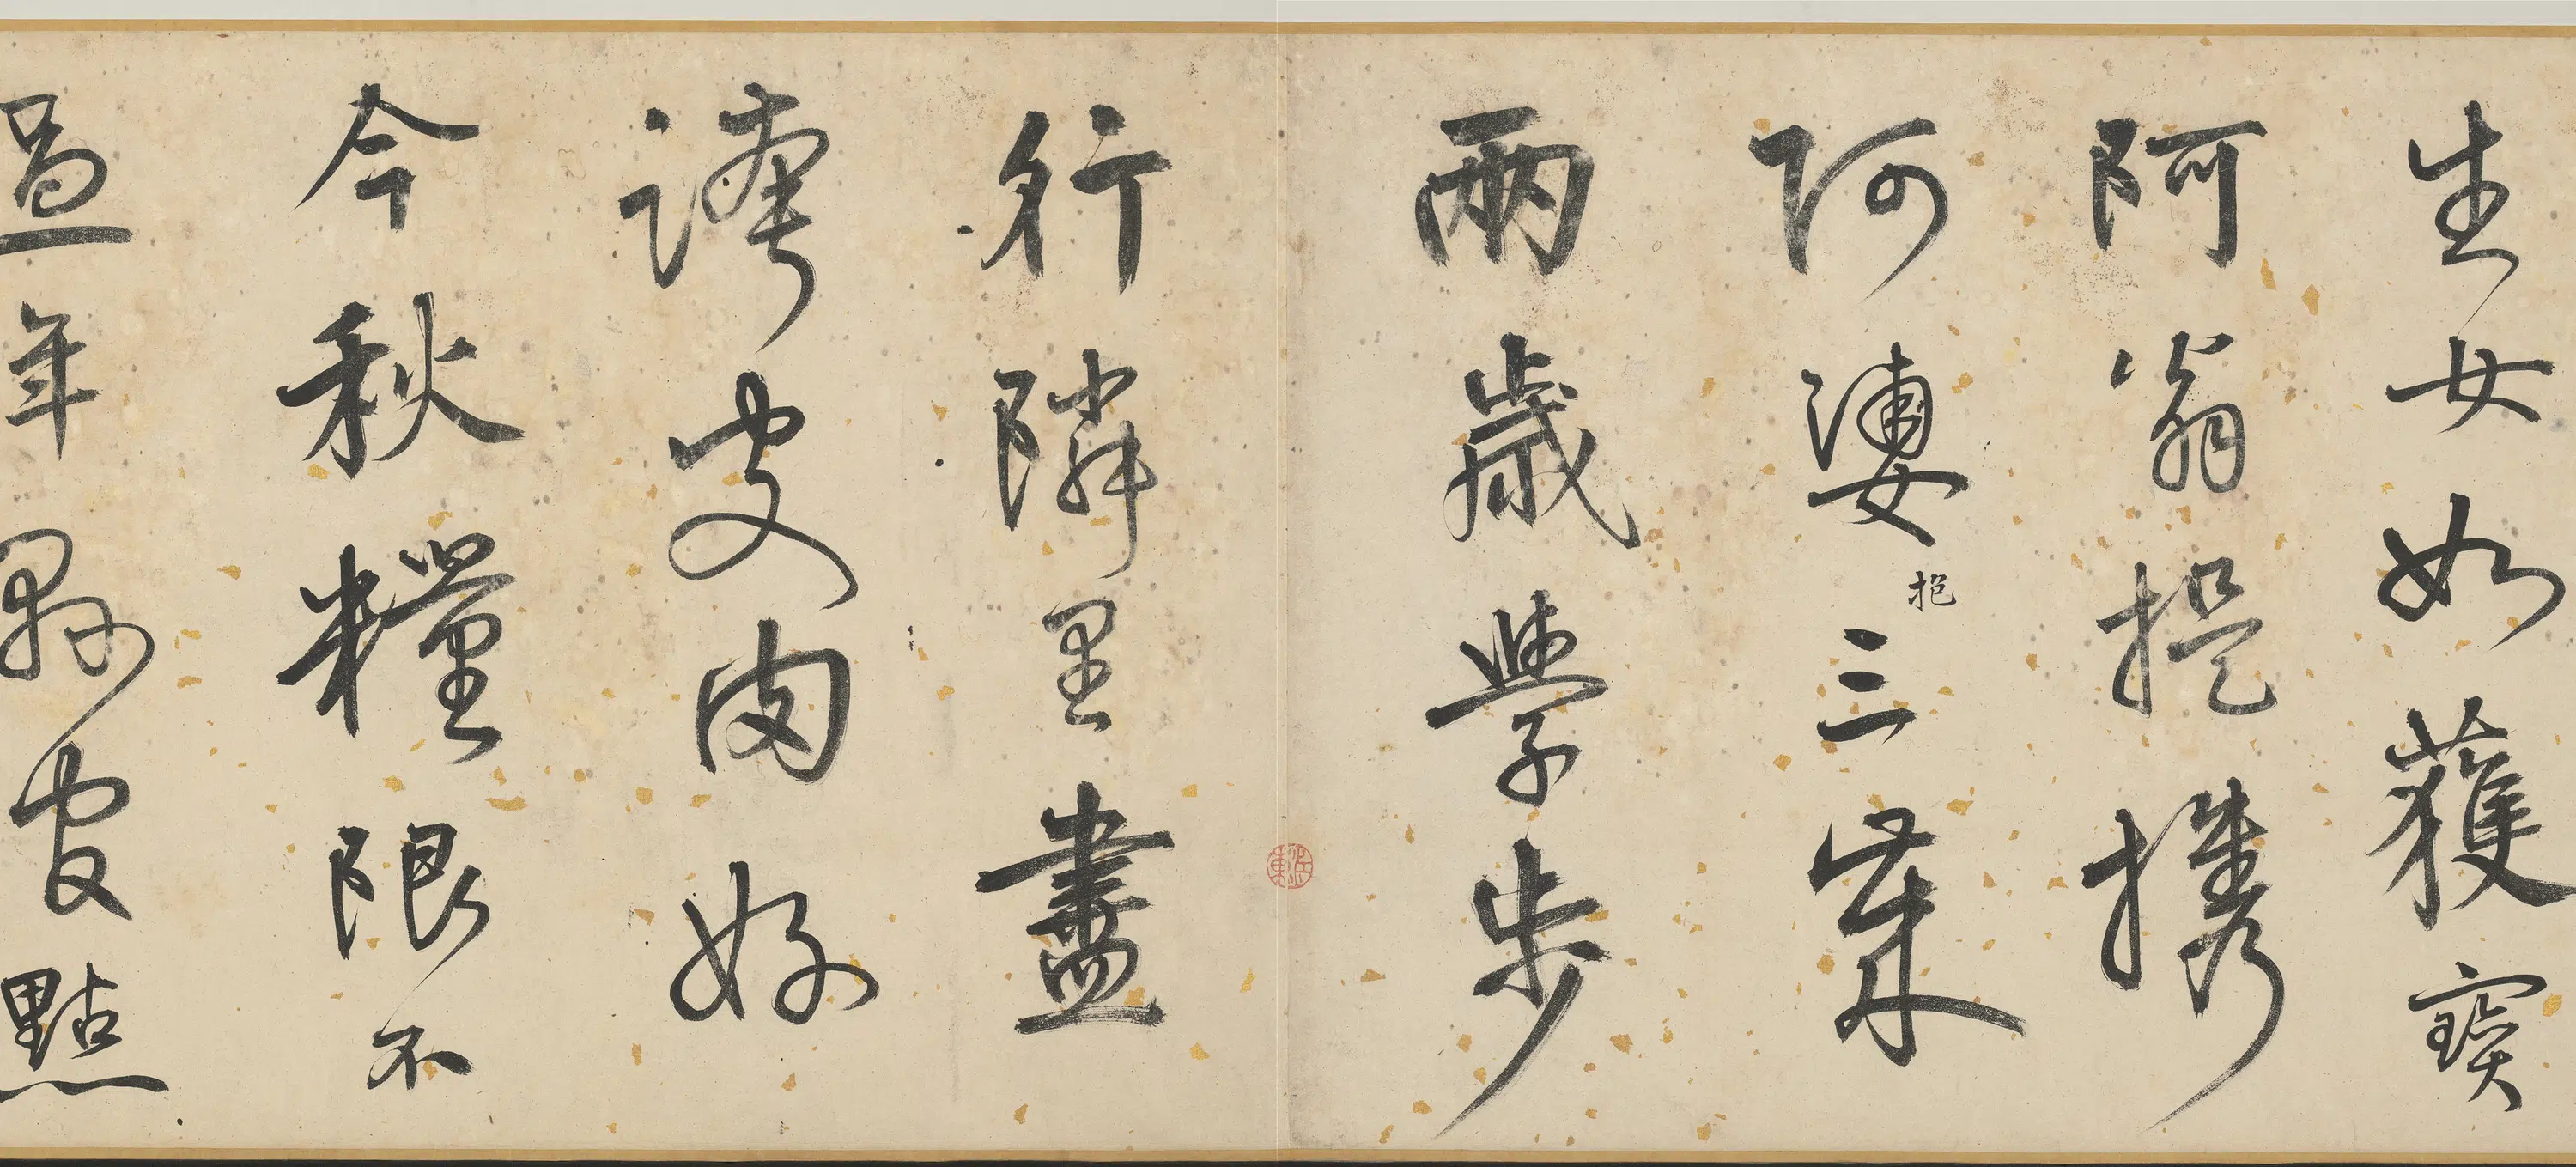 生女如獲寶
阿翁提攜
阿婆抱三
兩歲學步
行隣里盡
誇皮肉好
今秋糧限不
過年縣官點